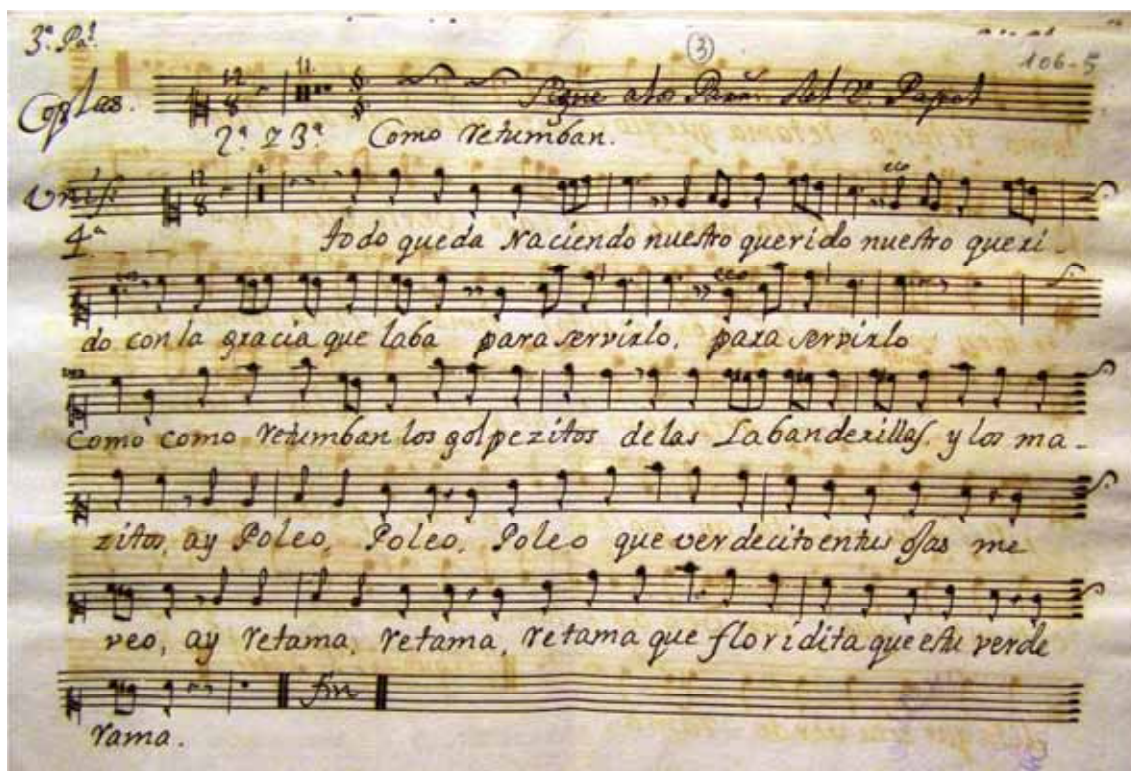 3ª. Pª.
③
106-5
Coplas. 12 8 11. Sigue a los del 2º. Papel
2ª. 2 3ª. Como retumban.
Unis. 12 8 eco
4ª. todo queda Naciendo nuestro querido nuestro queri-
eco
do con la gracia que laba para servirlo, para servirlo
como como retumban los golpezitos de las Labanderillas, y los ma-
zitos, ay Poleo, Poleo, Poleo que verdecito en tus ojas me
veo, ay retama, retama, retama que floridita que esta verde
fin
rama.